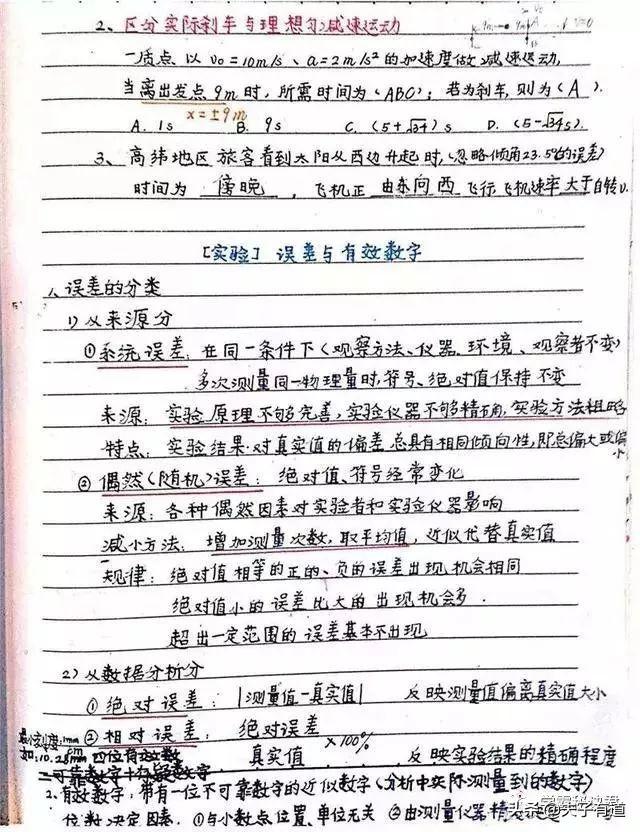 2、区分实际刹车与理想匀减速运动
一质点以 v₀=10m/s、a=2m/s²的加速度做减速运动,
当离出发点9m时,所需时间为(ABC);若为刹车,则为(A).
x=±9m
A. 1s B. 9s C. (5+√34)s D. (5-√34s).
3、高纬地区旅客看到太阳从西边升起时,(忽略倾角23.5°的误差)
时间为 傍晚 ,飞机正 由东向西 飞行飞机速率大于自转v.
[实验] 误差与有效数字
一、误差的分类
1) 从来源分
①系统误差:在同一条件下(观察方法、仪器、环境、观察者不变)
多次测量同一物理量时,符号、绝对值保持不变
来源:实验原理不够完善,实验仪器不够精确,实验方法粗略
特点:实验结果对真实值的偏差总具有相同倾向性,即总偏大或偏小
②偶然(随机)误差:绝对值、符号经常变化
来源:各种偶然因素对实验者和实验仪器影响
减小方法:增加测量次数,取平均值,近似代替真实值
规律:绝对值相等的正的、负的误差出现机会相同
绝对值小的误差比大的出现机会多.
超出一定范围的误差基本不出现
2) 从数据分析分
①绝对误差:|测量值-真实值| 反映测量值偏离真实值大小
②相对误差:绝对误差
真实值 ×100% 反映实验结果的精确程度
最小刻度:1mm
如:10.28cm 四位有效数
2、有效数字:带有一位不可靠数字的近似数字(分析中实际测量到的数字)
位数决定因素. ①与小数点位置、单位无关 ②由测量仪器精
头条@夫子有道